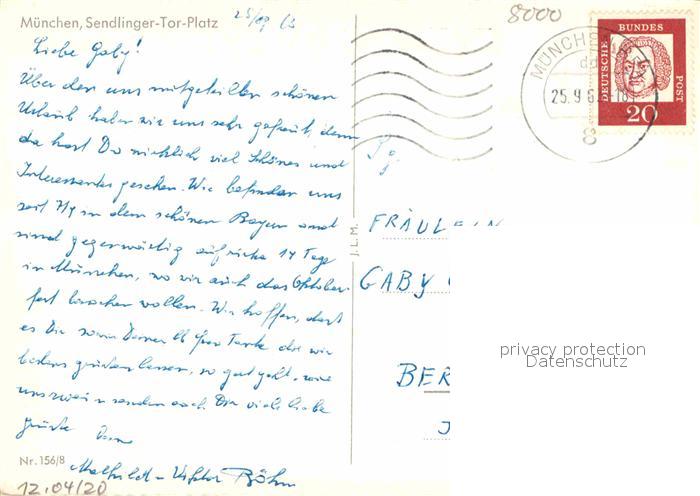 München, Sendlinger-Tor-Platz
25/09 63
8000
Liebe Gaby!
Über den uns mitgeteilten schönen
Urlaub haben wir uns sehr gefreut, denn
da hast Du wirklich viel Schönes und
Interessantes gesehen. Wir befinden uns
seit 7/9 in dem schönen Bayern und
sind gegenwärtig auf ca. 14 Tage
in München, wo wir auch das Oktober-
fest besuchen wollen. Wir hoffen, dass
es Dir sowie Deiner lb. Frau Tante die wir
bestens grüssen lassen, so gut geht, wie
uns zwei u. senden auch Dir viele liebe
Grüsse
Mathilde u. Viktor Böhm
Nr. 156/8
12.04/20
J.L.M.
MÜNCHEN
25.9.6
8
DEUTSCHE BUNDESPOST
20
FRÄULEIN
GABY
BER
privacy protection
Datenschutz